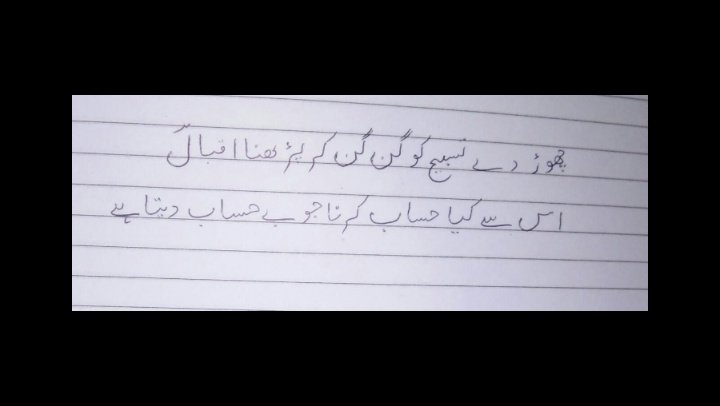 چھوڑ دے تسبیح کو گن گن کر پڑھنا اقبالؒ
اس سے کیا حساب کرنا جو بے حساب دیتا ہے